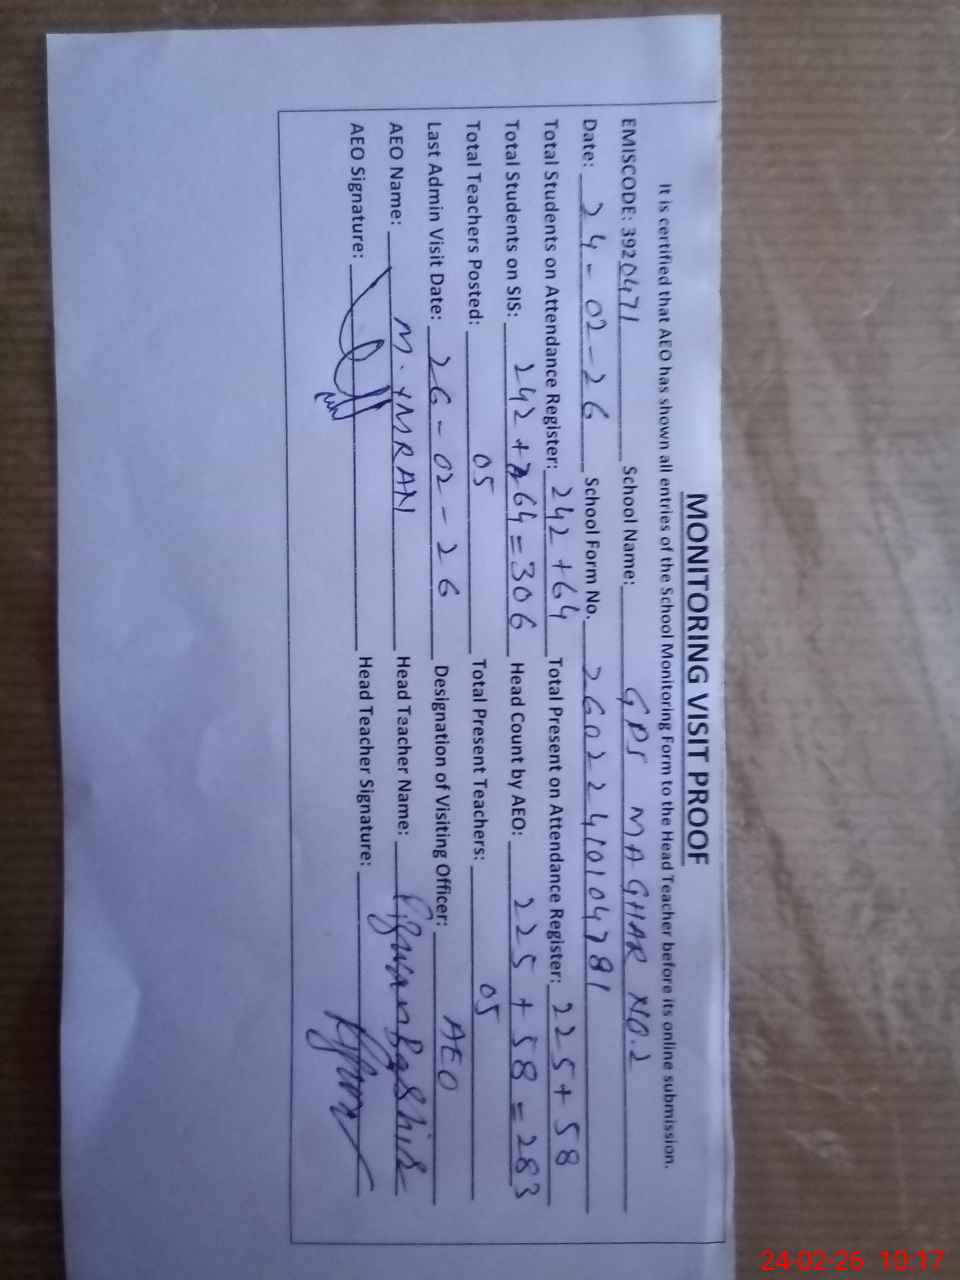 MONITORING VISIT PROOF
It is certified that AEO has shown all entries of the School Monitoring Form to the Head Teacher before its online submission.
EMISCODE: 3920471 School Name: GPS MAGHAR NO.2
Date: 24-02-26 School Form No. 26022410104781
Total Students on Attendance Register: 242+64 Total Present on Attendance Register: 225+58
Total Students on SIS: 242+64=306 Head Count by AEO: 225+58=283
Total Teachers Posted: 05 Total Present Teachers: 05
Last Admin Visit Date: 26-02-26 Designation of Visiting Officer: AEO
AEO Name: M. IMRAN Head Teacher Name: Rizwan Bashir
AEO Signature: Head Teacher Signature:
24-02-26 10:17